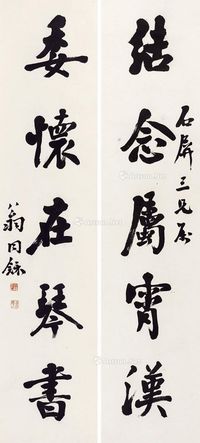 石屏三兄属
結念屬霄漢
委懷在琴書
翁同龢